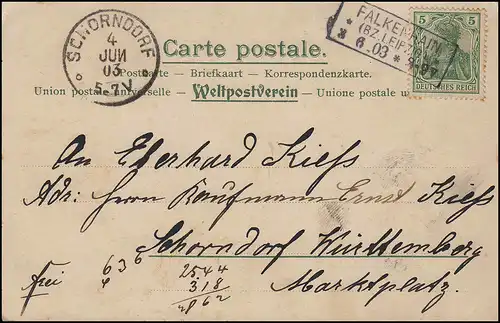 SCHORNDORF
4
JUN
03
5-7N
FALKENHAIN
* (BZ. LEIPZIG) *
3 6.03 * 8-9V
5 5
DEUTSCHES REICH
Carte postale.
Postkarte — Briefkaart — Korrespondenzkarte.
Union postale universelle — Weltpostverein — Unione postale
An Eberhard Kiess
Adr: Herrn Kaufmann Ernst Kiess
Schorndorf Württemberg
Marktplatz.
frei
636
2544
318